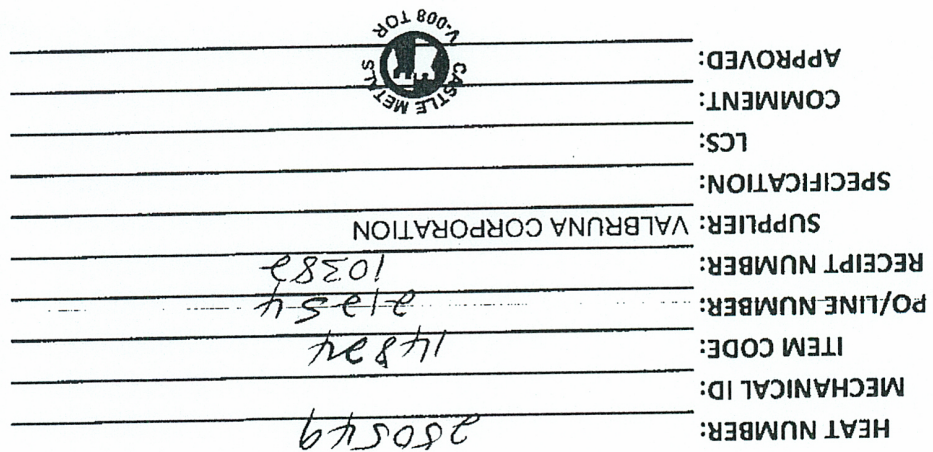 HEAT NUMBER: 250549
MECHANICAL ID:
ITEM CODE: 14824
PO/LINE NUMBER: 21254
RECEIPT NUMBER: 10382
SUPPLIER: VALBRUNA CORPORATION
SPECIFICATION:
LCS:
COMMENT:
APPROVED:
CASTLE METALS
V-008 TOR